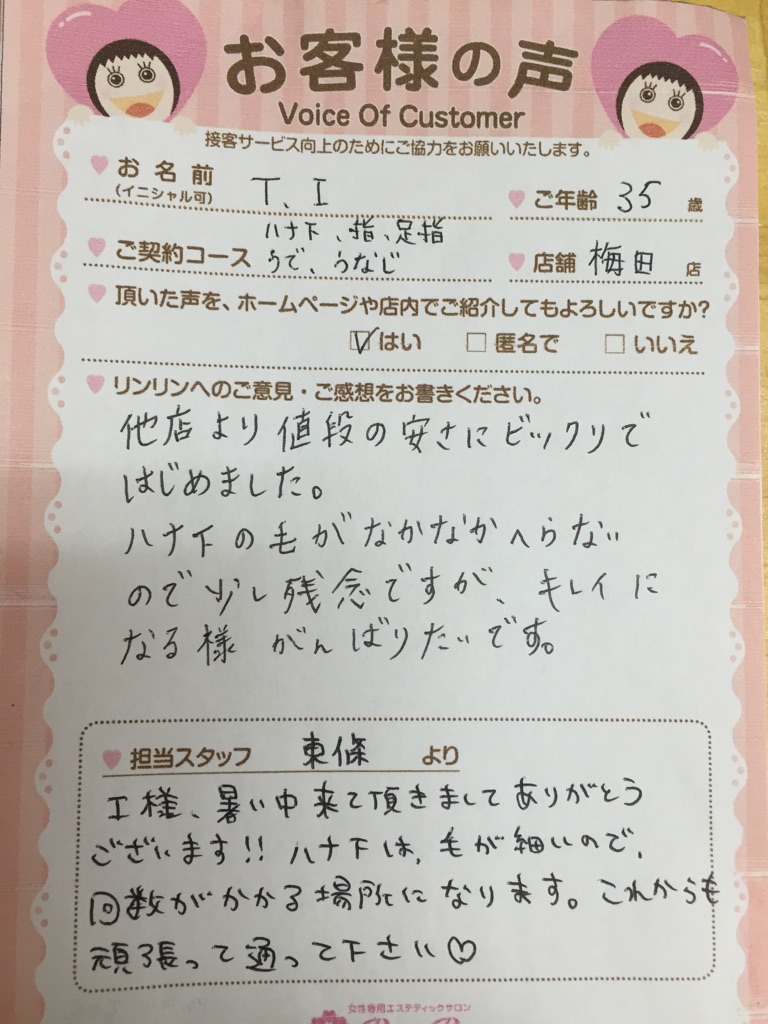 お客様の声
Voice Of Customer
接客サービス向上のためにご協力をお願いいたします。
お名前 T、I ご年齢 35 歳
(イニシャル可)
ハナ下、指、足指
ご契約コース うで、うなじ 店舗 梅田 店
頂いた声を、ホームページや店内でご紹介してもよろしいですか?
はい 匿名で いいえ
リンリンへのご意見・ご感想をお書きください。
他店より値段の安さにビックリで
はじめました。
ハナ下の毛がなかなかへらない
ので少し残念ですが、キレイに
なる様 がんばりたいです。
担当スタッフ 東條 より
I様、暑い中来て頂きましてありがとう
ございます!! ハナ下は、毛が細いので、
回数がかかる場所になります。これからも
頑張って通って下さい♡
女性専用エステティックサロン